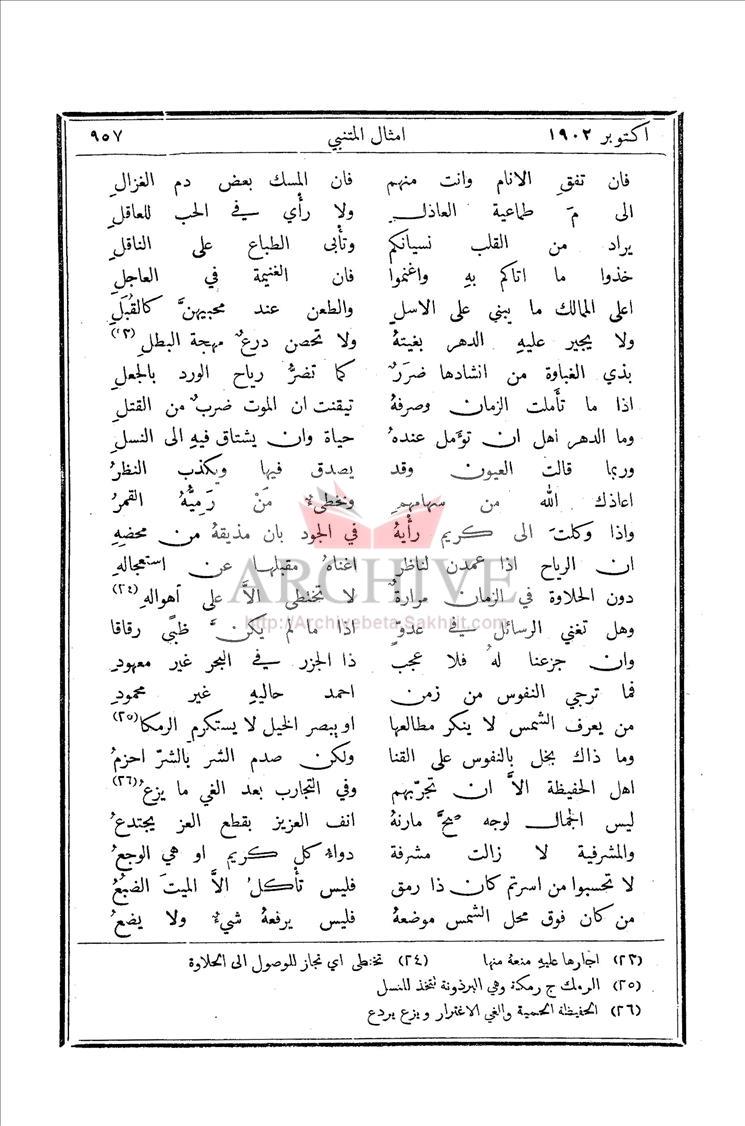 اكتوبر ١٩٠٢ امثال المتنبي ٩٥٧
فان تفق الانام وانت منهم فان المسك بعض دم الغزالِ
الى مَ طماعية العاذلِ ولا رأي في الحب للعاقلِ
يراد من القلب نسيانكم وتأبى الطباع على الناقلِ
خذوا ما اتاكم بهِ واغنموا فان الغنيمة في العاجلِ
اعلى الممالك ما يبنى على الاسلِ والطعن عند محبيهنَّ كالقُبَلِ
ولا يجير عليهِ الدهر بغيتهُ ولا تحصن درعٌ مهجة البطلِ (٢٣)
بذي الغباوة من انشادها ضررٌ كما تضرُّ رياح الورد بالجعلِ
اذا ما تأملت الزمان وصرفهُ تيقنت ان الموت ضربٌ من القتلِ
وما الدهر أهل ان تؤمل عندهُ حياة وان يشتاق فيهِ الى النسلِ
وربما قالت العيون وقد يصدق فيها ويكذب النظرُ
اعاذك الله من سهامهم ونخطئٌ مَنْ رَمِيُّهُ القمرُ
واذا وكلتَ الى كريم رأيهُ في الجود بان مذيقهُ من محضهِ
ان الرياح اذا عمدن لناظر اغناهُ مقبلها عن استعجالهِ
دون الحلاوة في الزمان مرارةٌ لا تختطى الاَّ على أهوالهِ (٢٤)
وهل تغني الرسائل في عدوّ اذا ما لم يكنَّ ظبًى رقاقا
وان جزعنا لهُ فلا عجب ذا الجزر في البحر غير معهودِ
فما ترجي النفوس من زمن احمد حاليهِ غير محمودِ
من يعرف الشمس لا ينكر مطالعها او يبصر الخيل لا يستكرم الرمكا (٢٥)
وما ذاك بخل بالنفوس على القنا ولكن صدم الشر بالشرّ احزمُ
اهل الحفيظة الاَّ ان تجرّبهم وفي التجارب بعد الغي ما يزعُ (٢٦)
ليس الجمال لوجه صحَّ مارنهُ انف العزيز بقطع العز يجتدعُ
والمشرفية لا زالت مشرفة دواءُ كل كريم او هي الوجعُ
لا تحسبوا من اسرتم كان ذا رمق فليس تأكلُ الاَّ الميتَ الضبعُ
من كان فوق محل الشمس موضعهُ فليس يرفعهُ شيءٌ ولا يضعُ
(٢٣) اجارها عليهِ منعهُ منها (٢٤) تختطى اي تجاز للوصول الى الحلاوة
(٢٥) الرمك ج رمكة وهي البرذونة تتخذ للنسل
(٢٦) الحفيظة الحمية والغي الاغترار ويزع يردع
ARCHIVE
http://Archivebeta.Sakhrit.com